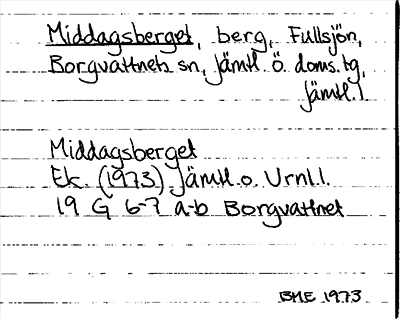 Middagsberget, berg, Fullsjön,
Borgvattnets sn, Jämtl. Ö. doms. tg,
Jämtl. l.
Middagsberget
Ek. (1973) Jämtl. o. Urnl.l.
19 G 6-7 a-b Borgvattnet
BME 1973